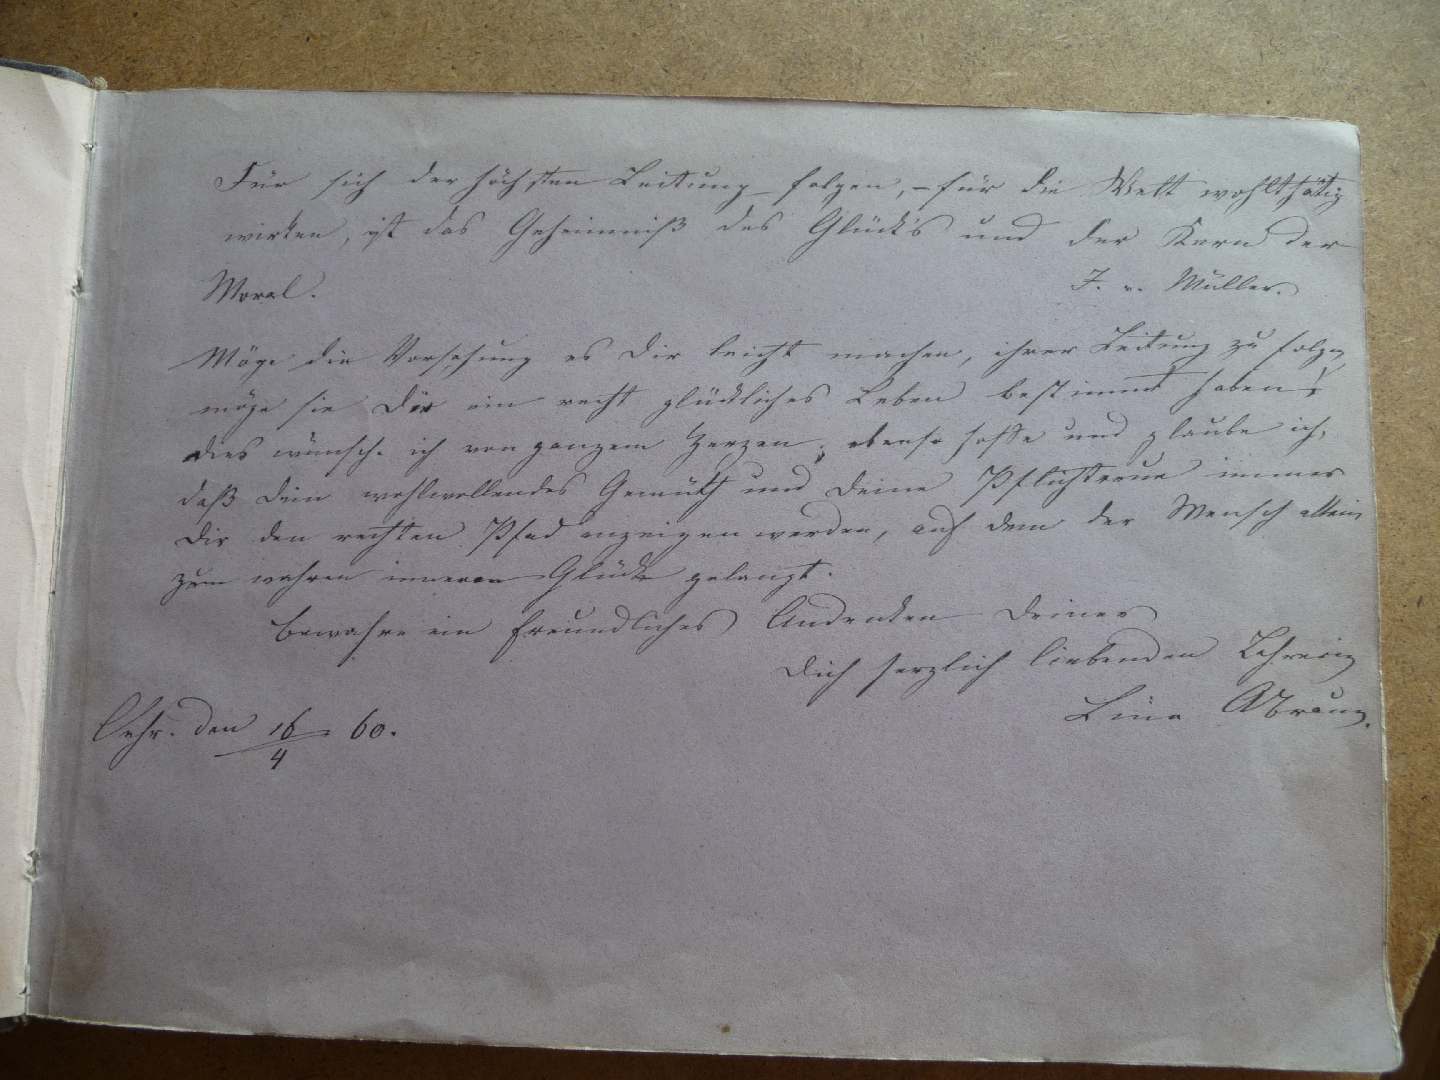 Für sich der höchsten Leitung folgen, – für die Welt wohlthätig
wirken, ist das Geheimniß des Glück's und der Kern der
Moral.
J. v. Müller.
Möge die Vorsehung es Dir leicht machen, ihrer Leitung zu folgen,
möge sie Dir ein recht glückliches Leben bestimmt haben;
dies wünsche ich von ganzem Herzen; ebenso hoffe und glaube ich,
daß Dein wohlwollendes Gemüth und Deine Pflichttreue immer
Dir den rechten Pfad anzeigen werden, auf dem der Mensch allein
zum wahren inneren Glücke gelangt.
Bewahre ein freundliches Andenken Deiner
Dich herzlich liebenden Lehrerin
Lina
den 16/4 60.